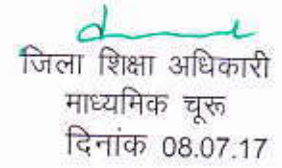 जिला शिक्षा अधिकारी
माध्यमिक चूरू
दिनांक 08.07.17